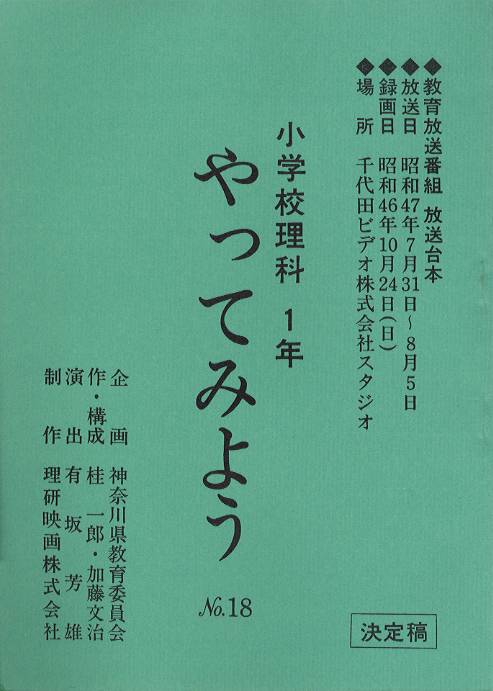 ◆教育放送番組 放送台本
◆放送日 昭和47年7月31日～8月5日
◆録画日 昭和46年10月24日(日)
◆場所 千代田ビデオ株式会社スタジオ
小学校理科 1年
やってみよう
No.18
企画 神奈川県教育委員会
作・構成 桂一郎・加藤文治
演出 有坂芳雄
制作 理研映画株式会社
決定稿